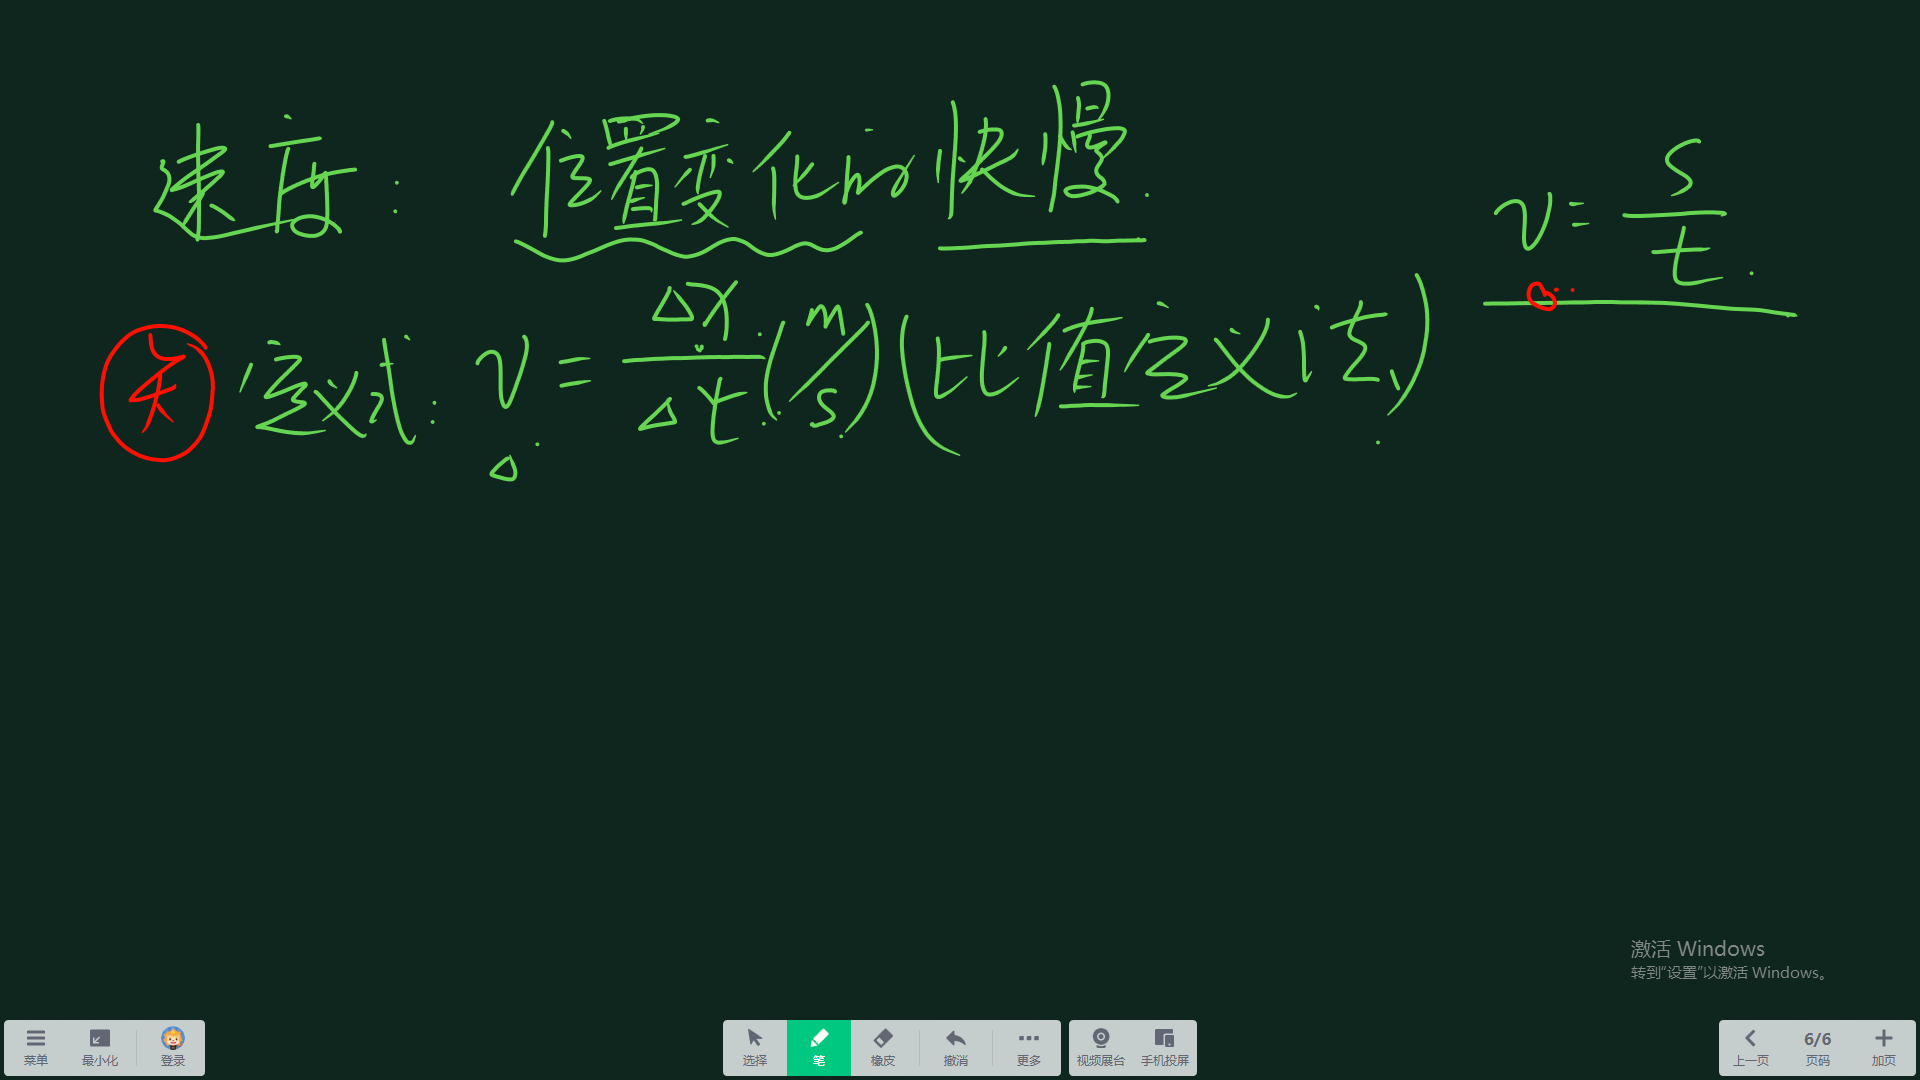 速度: 位置变化的快慢.
v = s/t.
矢 定义式: v = Δx/Δt (m/s) (比值定义法)
激活 Windows
转到“设置”以激活 Windows。
菜单 最小化 登录 选择 笔 橡皮 撤消 更多 视频展台 手机投屏 上一页 6/6 页码 加页